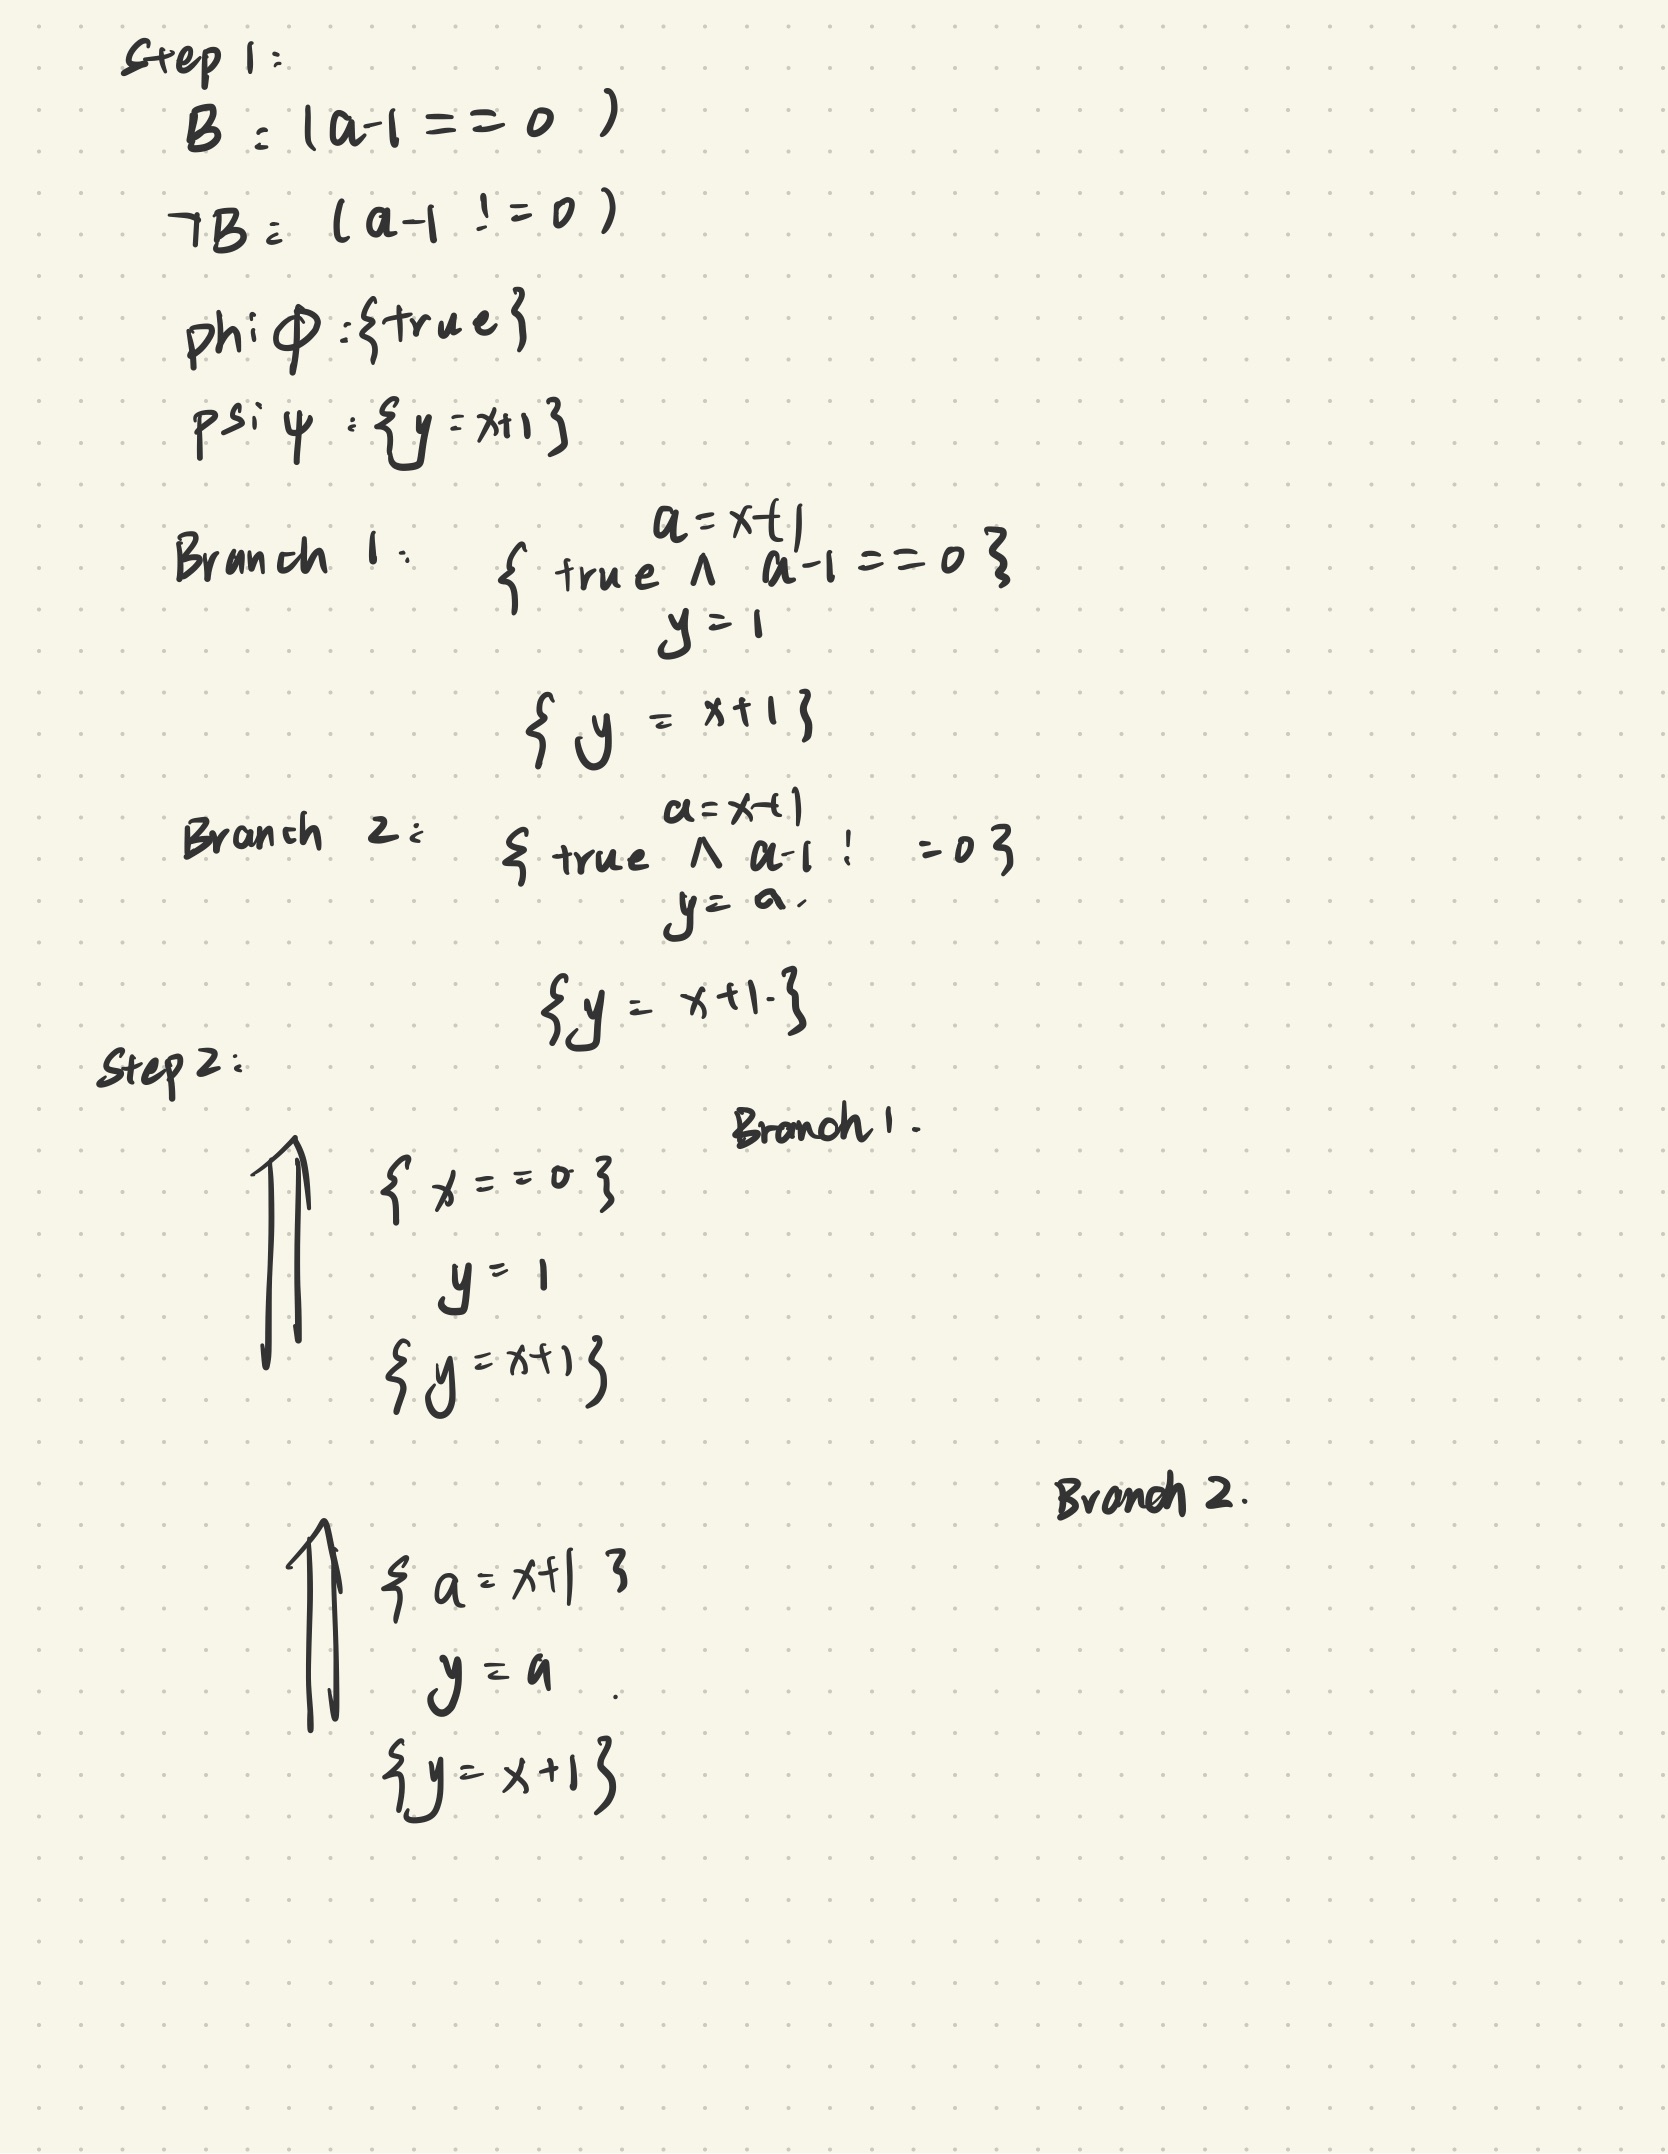 Step 1:
B : (a-1 == 0 )
¬B : (a-1 != 0 )
phi ϕ : {true}
psi ψ : {y = x+1}
a = x+1
Branch 1: { true ∧ a-1 == 0 }
y = 1
{ y = x+1 }
a = x+1
Branch 2: { true ∧ a-1 ! = 0 }
y = a.
{y = x+1.}
Step 2:
Branch 1.
{ x == 0 }
y = 1
{y = x+1}
Branch 2.
{ a = x+1 }
y = a .
{y = x+1}